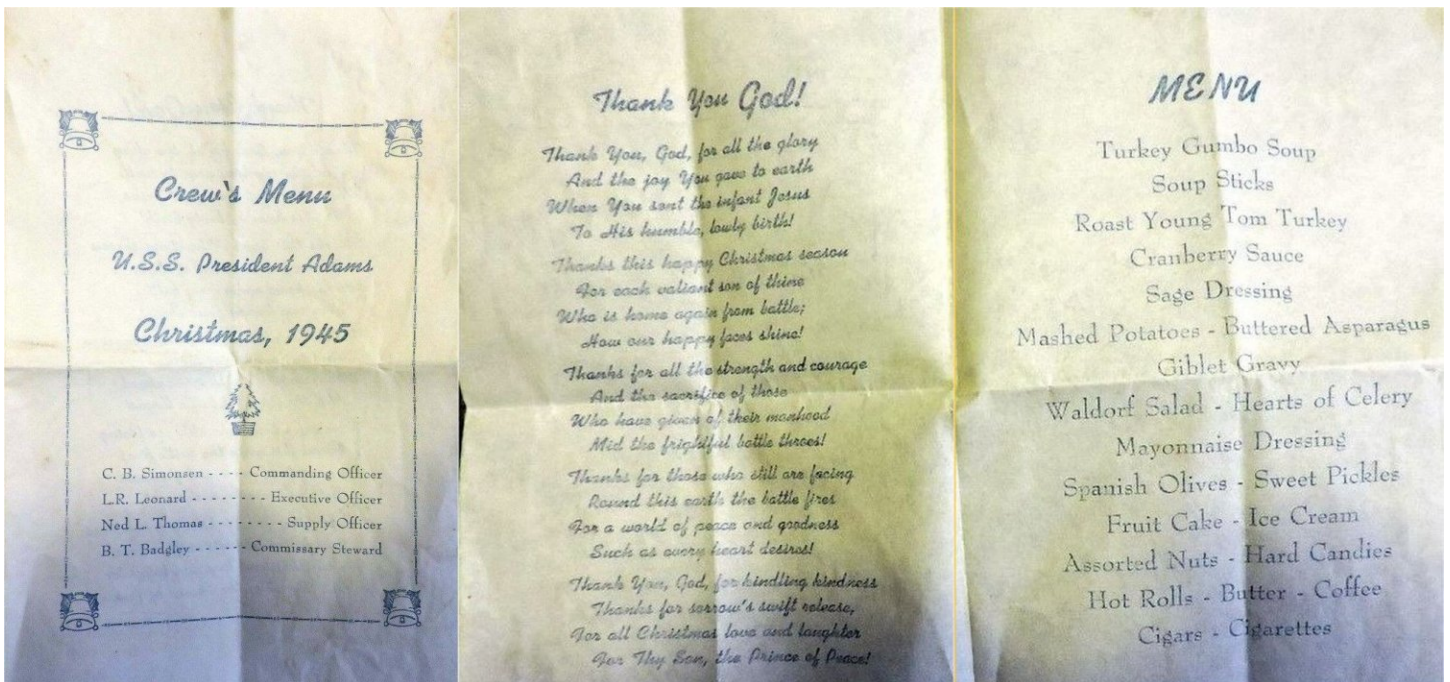 Crew's Menu
U.S.S. President Adams
Christmas, 1945
C. B. Simonsen - - - - Commanding Officer
L.R. Leonard - - - - - - - - Executive Officer
Ned L. Thomas - - - - - - - - Supply Officer
B. T. Badgley - - - - - - Commissary Steward
Thank You God!
Thank You, God, for all the glory
And the joy You gave to earth
When You sent the infant Jesus
To His humble, lowly birth!
Thanks this happy Christmas season
For each valiant son of thine
Who is home again from battle;
How our happy faces shine!
Thanks for all the strength and courage
And the sacrifice of those
Who have given of their manhood
Mid the frightful battle throes!
Thanks for those who still are facing
Round this earth the battle fires
For a world of peace and goodness
Such as every heart desires!
Thank You, God, for kindling kindness
Thanks for sorrow's swift release,
For all Christmas love and laughter
For Thy Son, the Prince of Peace!
MENU
Turkey Gumbo Soup
Soup Sticks
Roast Young Tom Turkey
Cranberry Sauce
Sage Dressing
Mashed Potatoes - Buttered Asparagus
Giblet Gravy
Waldorf Salad - Hearts of Celery
Mayonnaise Dressing
Spanish Olives - Sweet Pickles
Fruit Cake - Ice Cream
Assorted Nuts - Hard Candies
Hot Rolls - Butter - Coffee
Cigars - Cigarettes